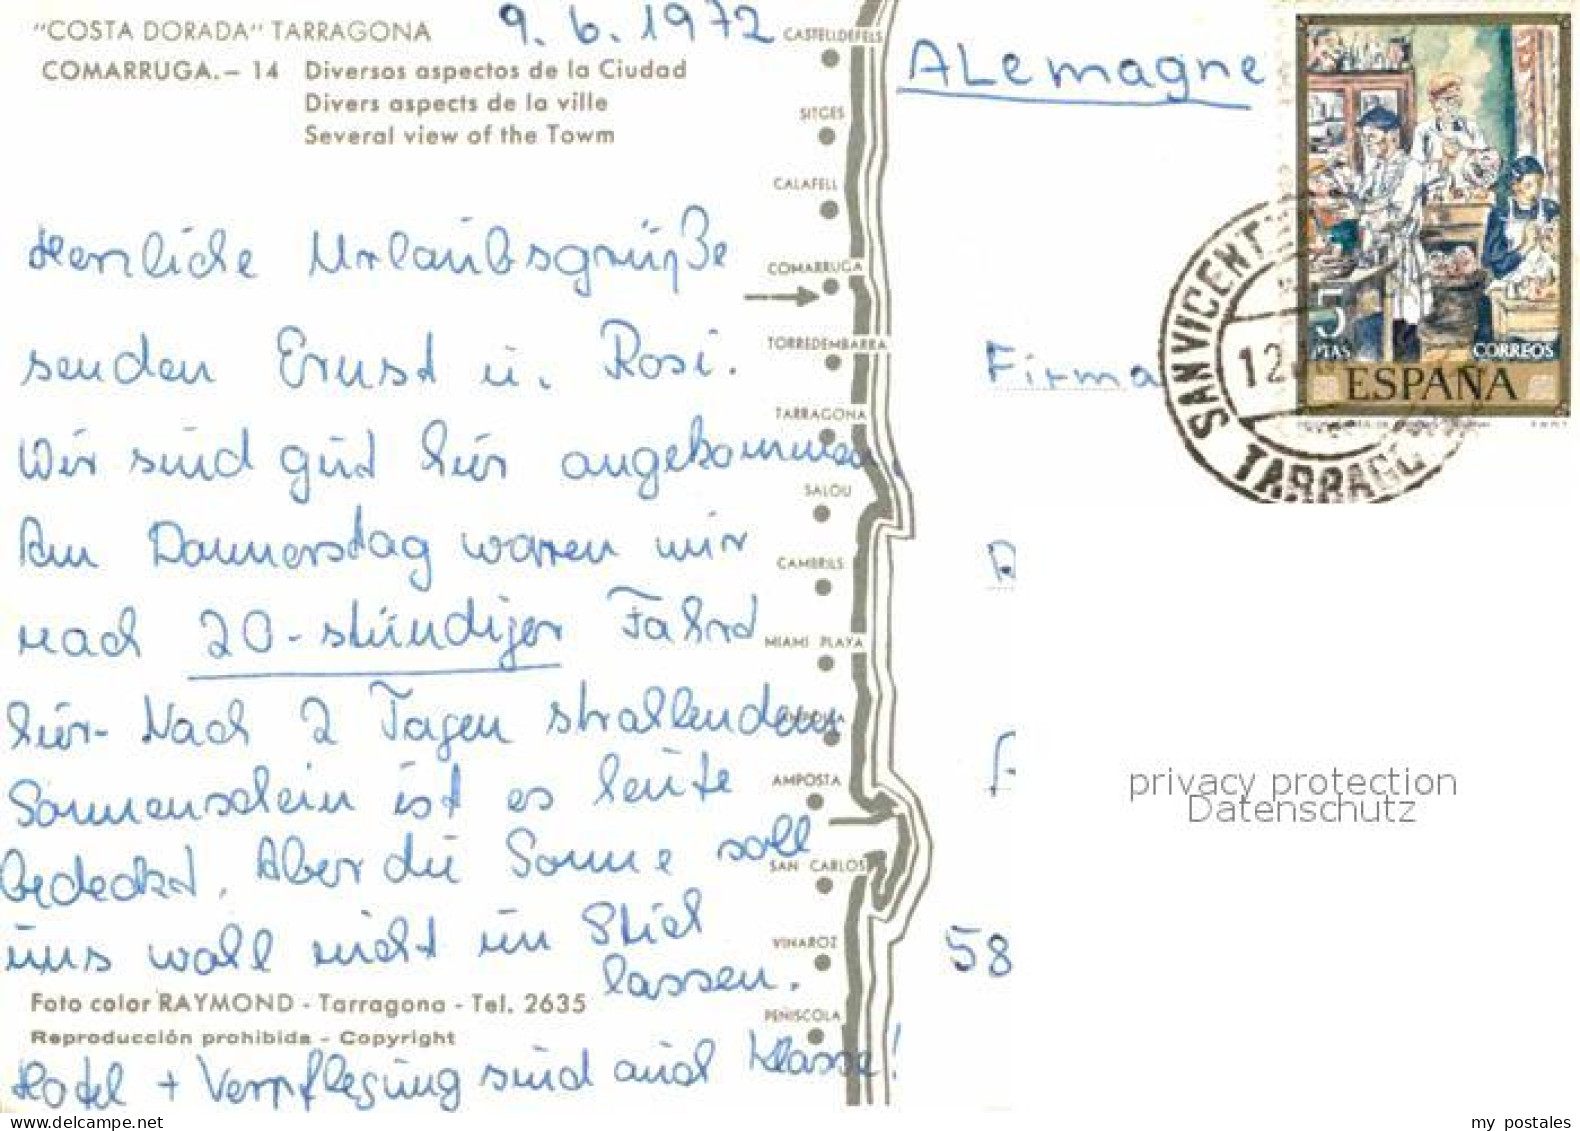 "COSTA DORADA" TARRAGONA
9.6.1972
COMARRUGA.- 14 Diversos aspectos de la Ciudad
Divers aspects de la ville
Several view of the Towm
Herzliche Urlaubsgrüße
senden Ernst u. Rosi.
Wir sind gut hier angekommen.
Am Donnerstag waren wir
nach 20-stündiger Fahrt
hier. Nach 2 Tagen strahlendem
Sonnenschein ist es heute
bedeckt. Aber die Sonne soll
uns wohl nicht im Stich
lassen.
Foto color RAYMOND - Tarragona - Tel. 2635
Reproducción prohibida - Copyright
Hotel + Verpflegung sind auch Klasse!
CASTELLDEFELS
SITGES
CALAFELL
COMARRUGA
TORREDEMBARRA
TARRAGONA
SALOU
CAMBRILS
MIAMI PLAYA
AMPOSTA
SAN CARLOS
VINAROZ
PEÑISCOLA
ALemagne
Firma
58
5
PTAS
CORREOS
ESPAÑA
SAN VICENT
12
TARRAG
privacy protection
Datenschutz
my postales